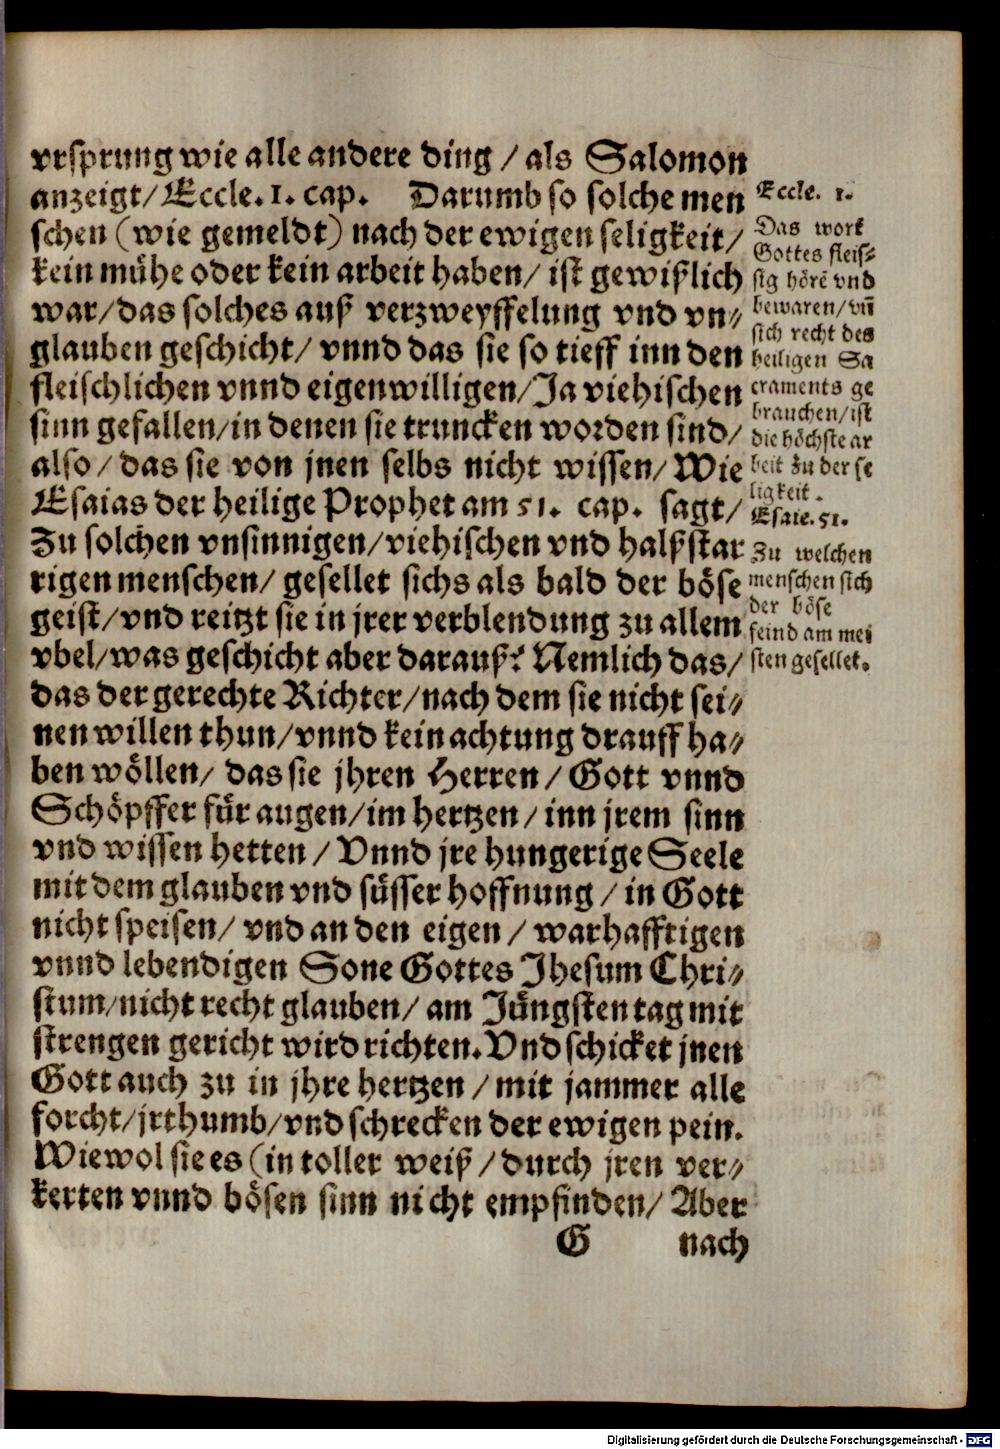 vrsprung wie alle andere ding / als Salomon
anzeigt/ Eccle. 1. cap. Darumb so solche men
schen (wie gemeldt) nach der ewigen seligkeit/
kein mühe oder kein arbeit haben/ ist gewißlich
war/das solches auß verzweyffelung vnd vn⸗
glauben geschicht/ vnnd das sie so tieff inn den
fleischlichen vnnd eigenwilligen/Ja viehischen
sinn gefallen/in denen sie truncken worden sind/
also/ das sie von jnen selbs nicht wissen/ Wie
Esaias der heilige Prophet am 51. cap. sagt/
Zu solchen vnsinnigen/viehischen vnd halßstar
rigen menschen/ gesellet sichs als bald der böse
geist/vnd reitzt sie in jrer verblendung zu allem
vbel/was geschicht aber darauß? Nemlich das/
das der gerechte Richter/nach dem sie nicht sei⸗
nen willen thun/vnnd kein achtung drauff ha⸗
ben wöllen/ das sie jhren Herren/ Gott vnnd
Schöpffer für augen/im hertzen/ inn jrem sinn
vnd wissen hetten/ Vnnd jre hungerige Seele
mit dem glauben vnd süsser hoffnung / in Gott
nicht speisen/ vnd an den eigen/ warhafftigen
vnnd lebendigen Sone Gottes Jhesum Chri⸗
stum/nicht recht glauben/ am Jüngsten tag mit
strengen gericht wird richten. Vnd schicket jnen
Gott auch zu in jhre hertzen/ mit jammer alle
forcht/jrthumb/vnd schrecken der ewigen pein.
Wiewol sie es (in toller weiß/ durch jren ver⸗
kerten vnnd bösen sinn nicht empfinden/ Aber
G nach
Eccle. 1.
Das wort
Gottes fleis⸗
sig hörẽ vnd
bewaren/vñ
sich recht des
heiligen Sa
craments ge
brauchen/ist
die höchste ar
beit zu der se
ligkeit.
Esaie. 51.
Zu welchen
menschen sich
der böse
feind am mei
sten gesellet.
Digitalisierung gefördert durch die Deutsche Forschungsgemeinschaft - DFG